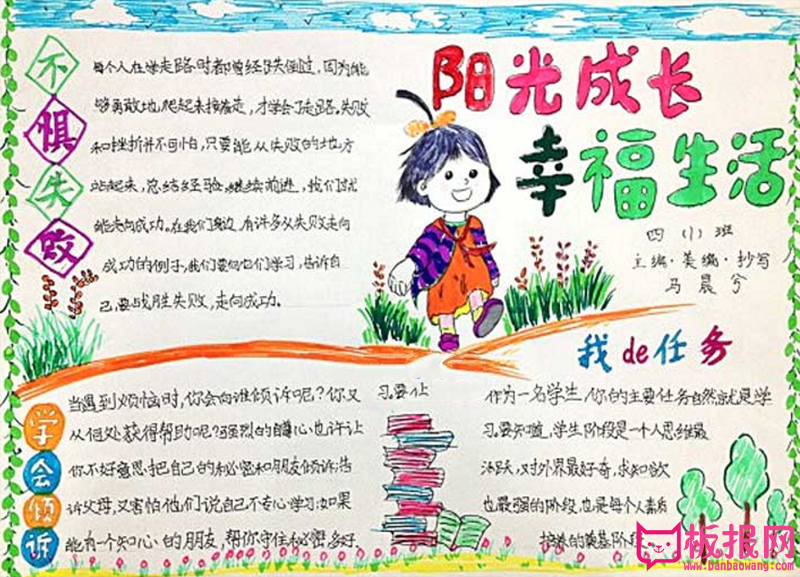 阳光成长
幸福生活
四(1)班
主编·美编·抄写
马晨兮
不惧失败
每个人在学走路时都曾经跌倒过,因为能
够勇敢地爬起来接着走,才学会了走路。失败
和挫折并不可怕,只要能从失败的地方
站起来,总结经验,继续前进,我们就
能走向成功。在我们身边,有许多从失败走向
成功的例子,我们要向它们学习,告诉自
己,要战胜失败,走向成功。
我de任务
作为一名学生,你的主要任务自然就是学
习。要知道,学生阶段是一个人思维最
活跃,对外界最好奇,求知欲
也最强的阶段,也是每个人素质
培养的奠基阶段
学会倾诉
当遇到烦恼时,你会向谁倾诉呢?你又
从何处获得帮助呢?强烈的自尊心也许让
你不好意思把自己的秘密和朋友倾诉,告
诉父母,又害怕他们说自己不专心学习;如果
能有一个知心的朋友,帮你守住秘密,多好
习。要让
板报网
www.banbaowang.com